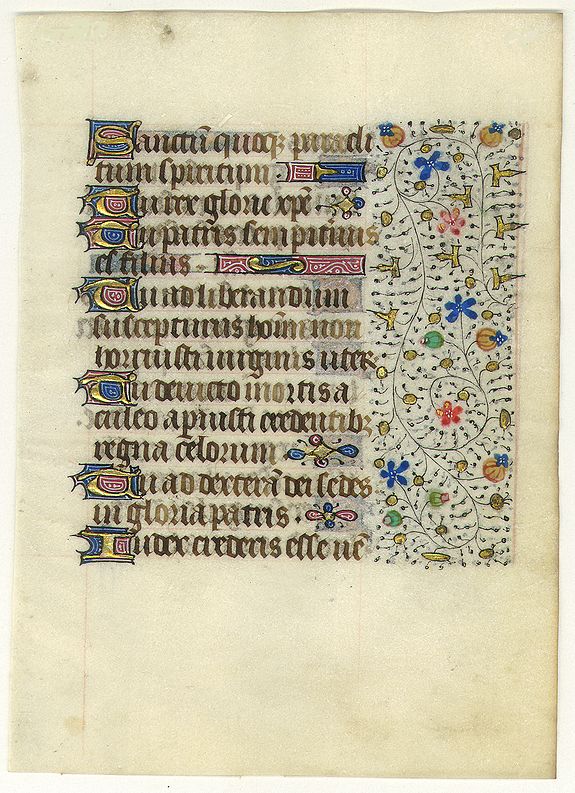 Sanctū quoqꝫ paracli
tum spiritum
Tu rex glorie xp̄e
Tu patris sempiturus
es filius
Tu ad liberandum
suscepturus hoīem non
horruisti uirginis uterꝫ
Tu deuicto mortis a
culeo apruisti credentibꝫ
regna celorum
Tu ad dexterā dei sedes
in gloria patris
Iudex crederis esse uē